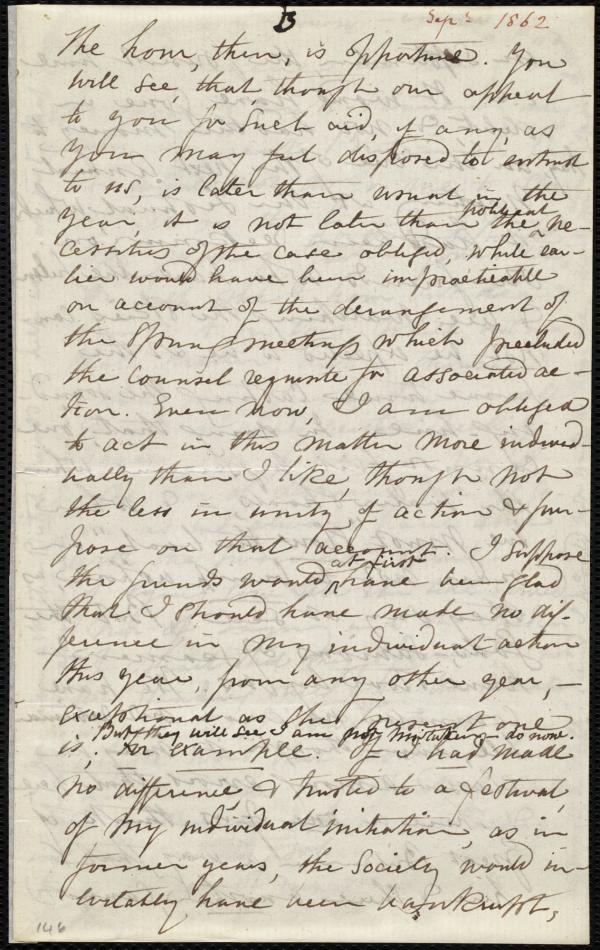 B
Sep. 1862
The hour, then, is opportune. You
will see, that, though our appeal
to you for such aid, if any, as
you may feel disposed to entrust
to us, is later than usual in the
year, it is not later than the ^political ne-
cessities of the case obliged, while ear-
lier would have been impracticable
on account of the derangement of
the Spring meetings which precluded
the counsel requisite for associated ac-
tion. Even now, I am obliged
to act in this matter more individ-
ually than I like, though not
the less in unity of action & pur-
pose on that account. I suppose
the friends would ^at first have been glad
that I should have made no dif-
ference in my individual action
this year, from any other year, —
exceptional as the present one
is. But they will see I am not mistaken - do now.
For example. If I had made
no difference, & trusted to a festival,
of my individual initiation, as in
former years, the Society would in-
evitably have been bankrupt,
146